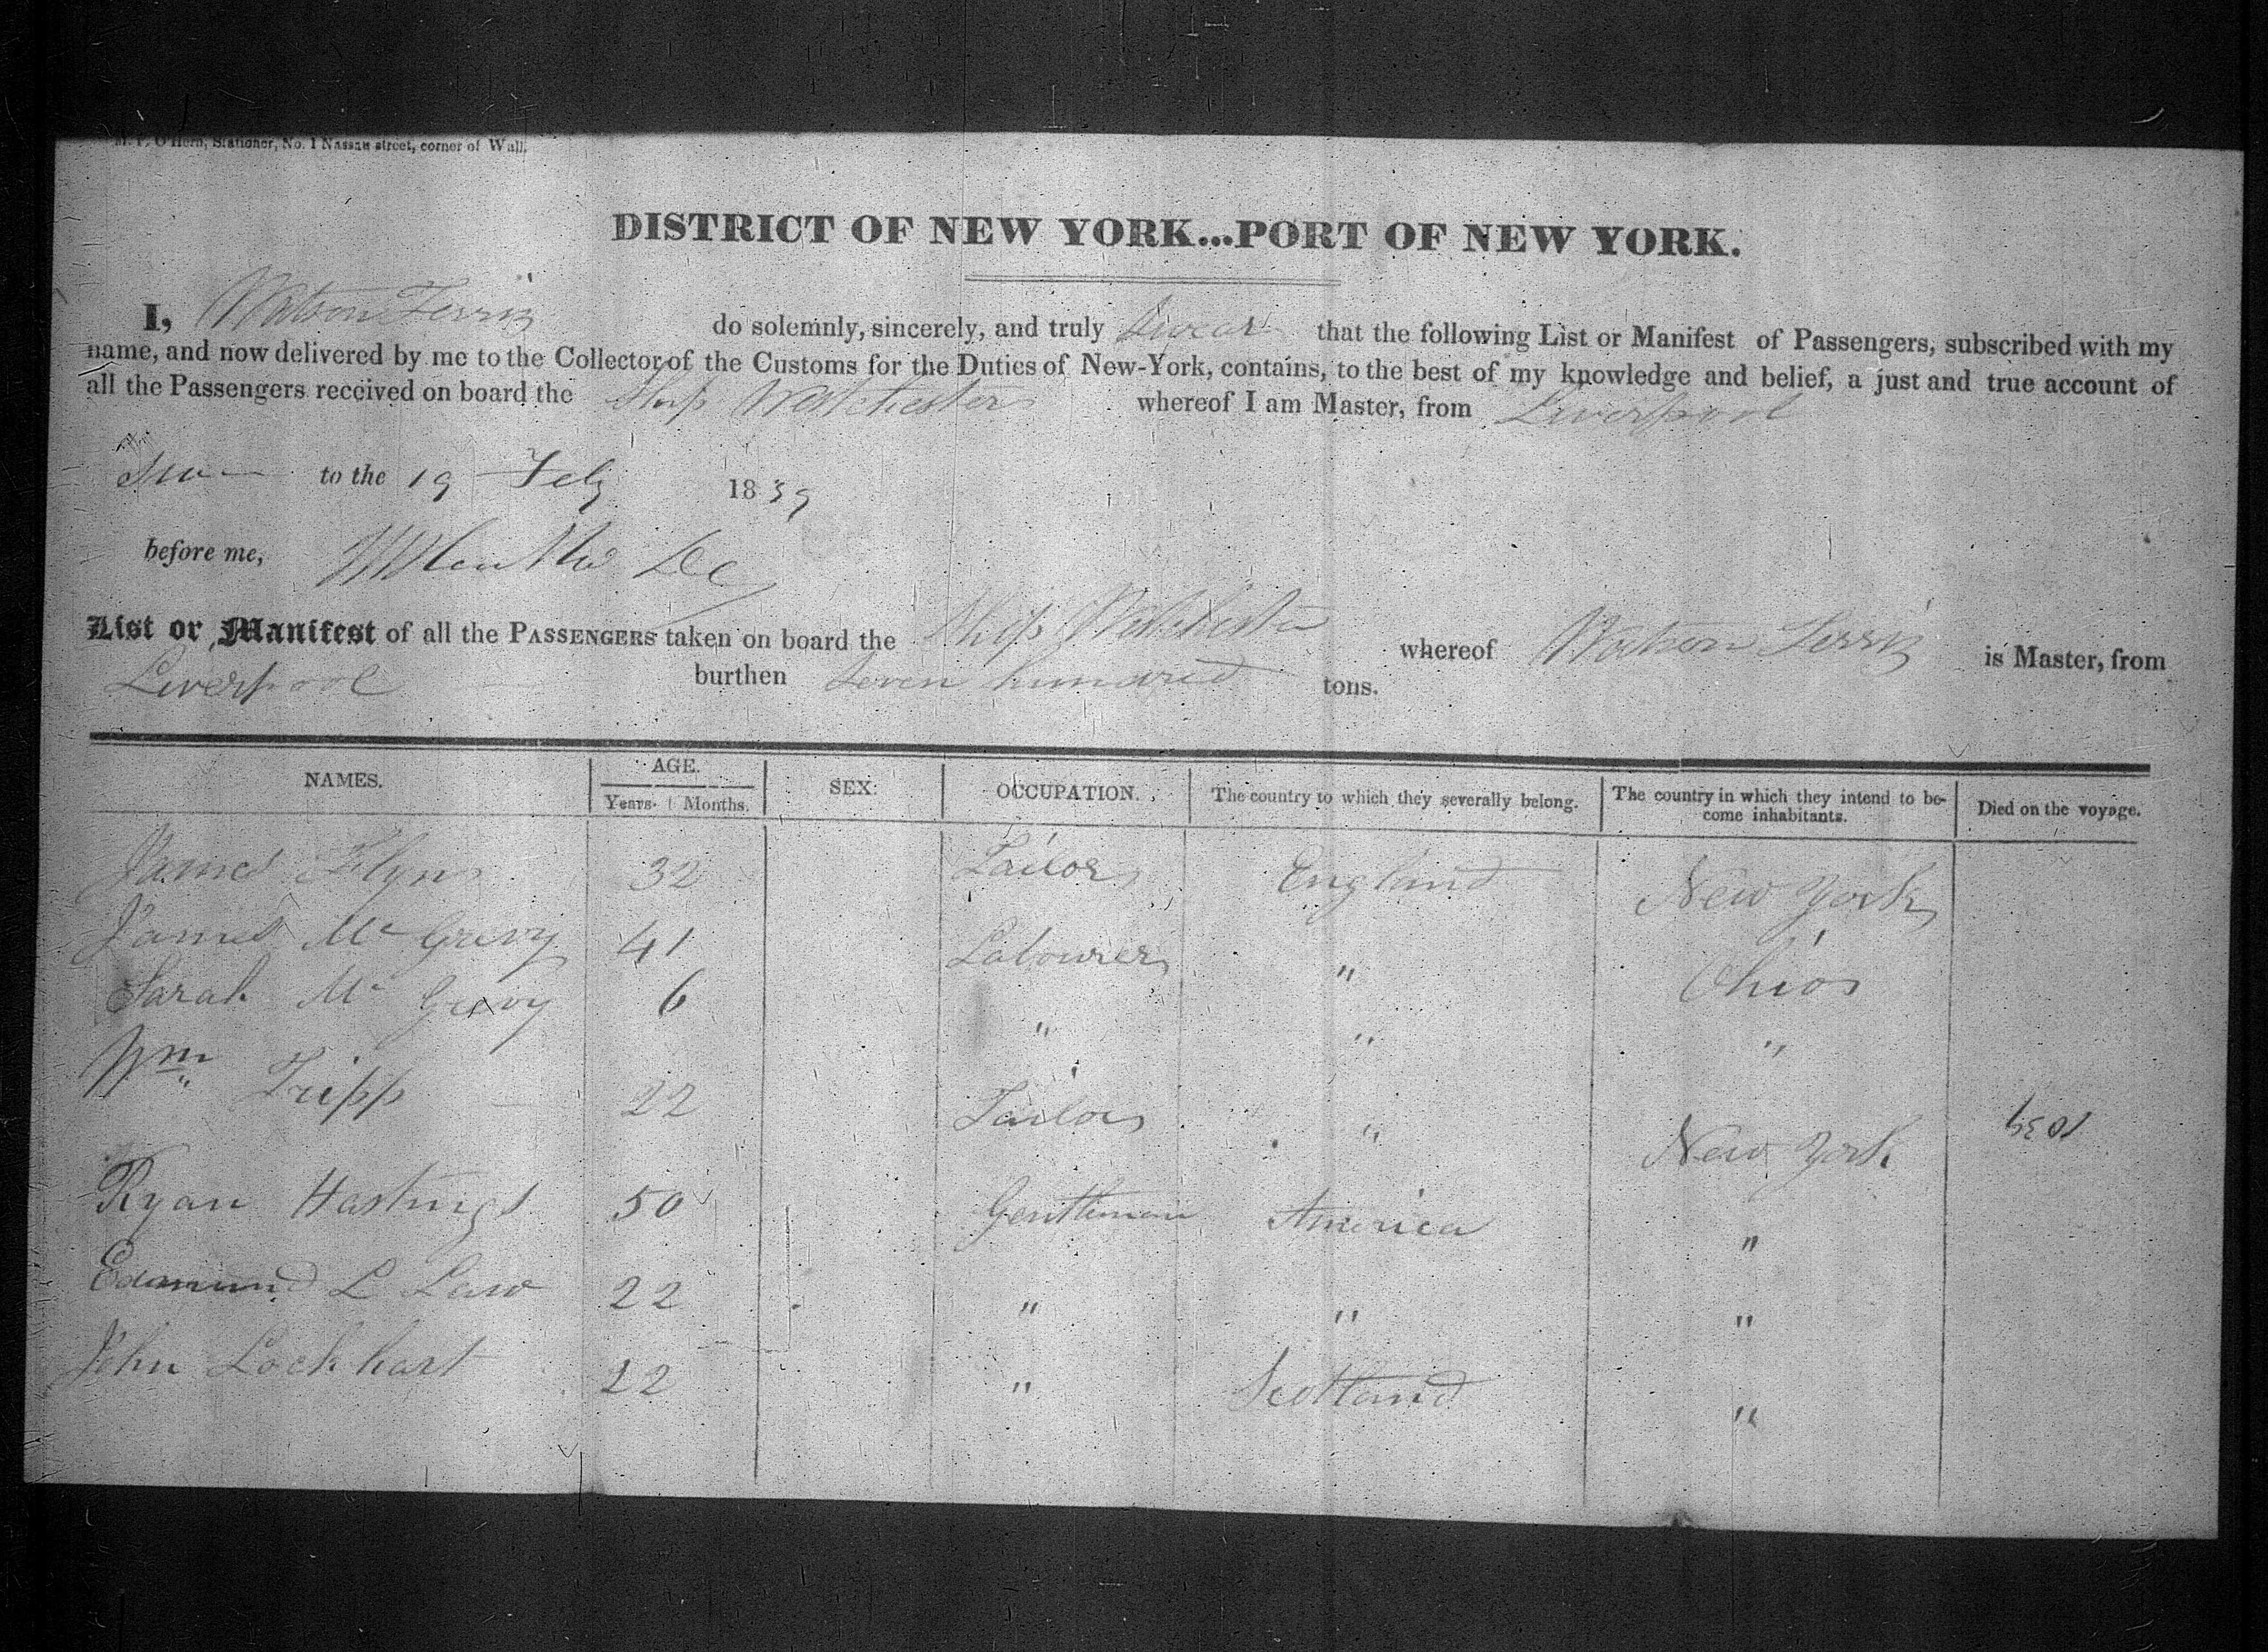 M. P. O'Hern, Stationer, No. 1 Nassau street, corner of Wall.
DISTRICT OF NEW YORK...PORT OF NEW YORK.
I, Watson Ferris do solemnly, sincerely, and truly swear that the following List or Manifest of Passengers, subscribed with my
name, and now delivered by me to the Collector of the Customs for the Duties of New-York, contains, to the best of my knowledge and belief, a just and true account of
all the Passengers received on board the Ship Westchester whereof I am Master, from Liverpool
to the 19 Feby 1839
before me,
List or Manifest of all the PASSENGERS taken on board the Ship Westchester whereof Watson Ferris is Master, from
Liverpool burthen Seven hundred tons.
NAMES. AGE. SEX: OCCUPATION. The country to which they severally belong. The country in which they intend to be-
come inhabitants. Died on the voyage.
Years. Months.
James Flyn 32 Tailor England New York
James Mc Grevy 41 Labourer " Ohio
Sarah Mc Grevy 6 " " "
Wm Tripp 22 Tailor " New York
Ryan Hastings 50 Gentleman America "
Edmund L Law 22 " " "
John Lockhart 22 " Scotland "